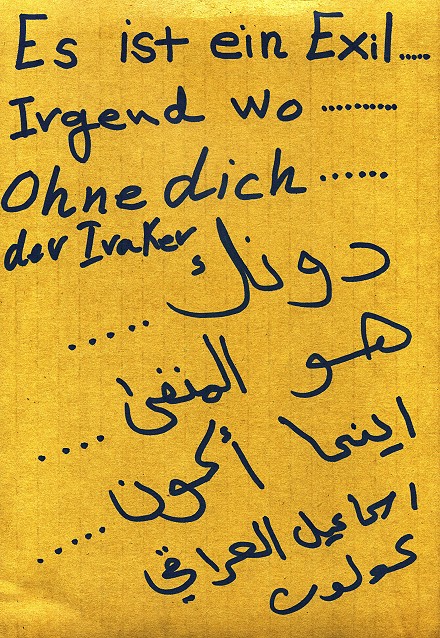 Es ist ein Exil.....
Irgend wo ..........
Ohne dich ......
der Iraker
دونك .....
هو المنفى ....
اينما أكون .....
اسماعيل العراقي
كولون